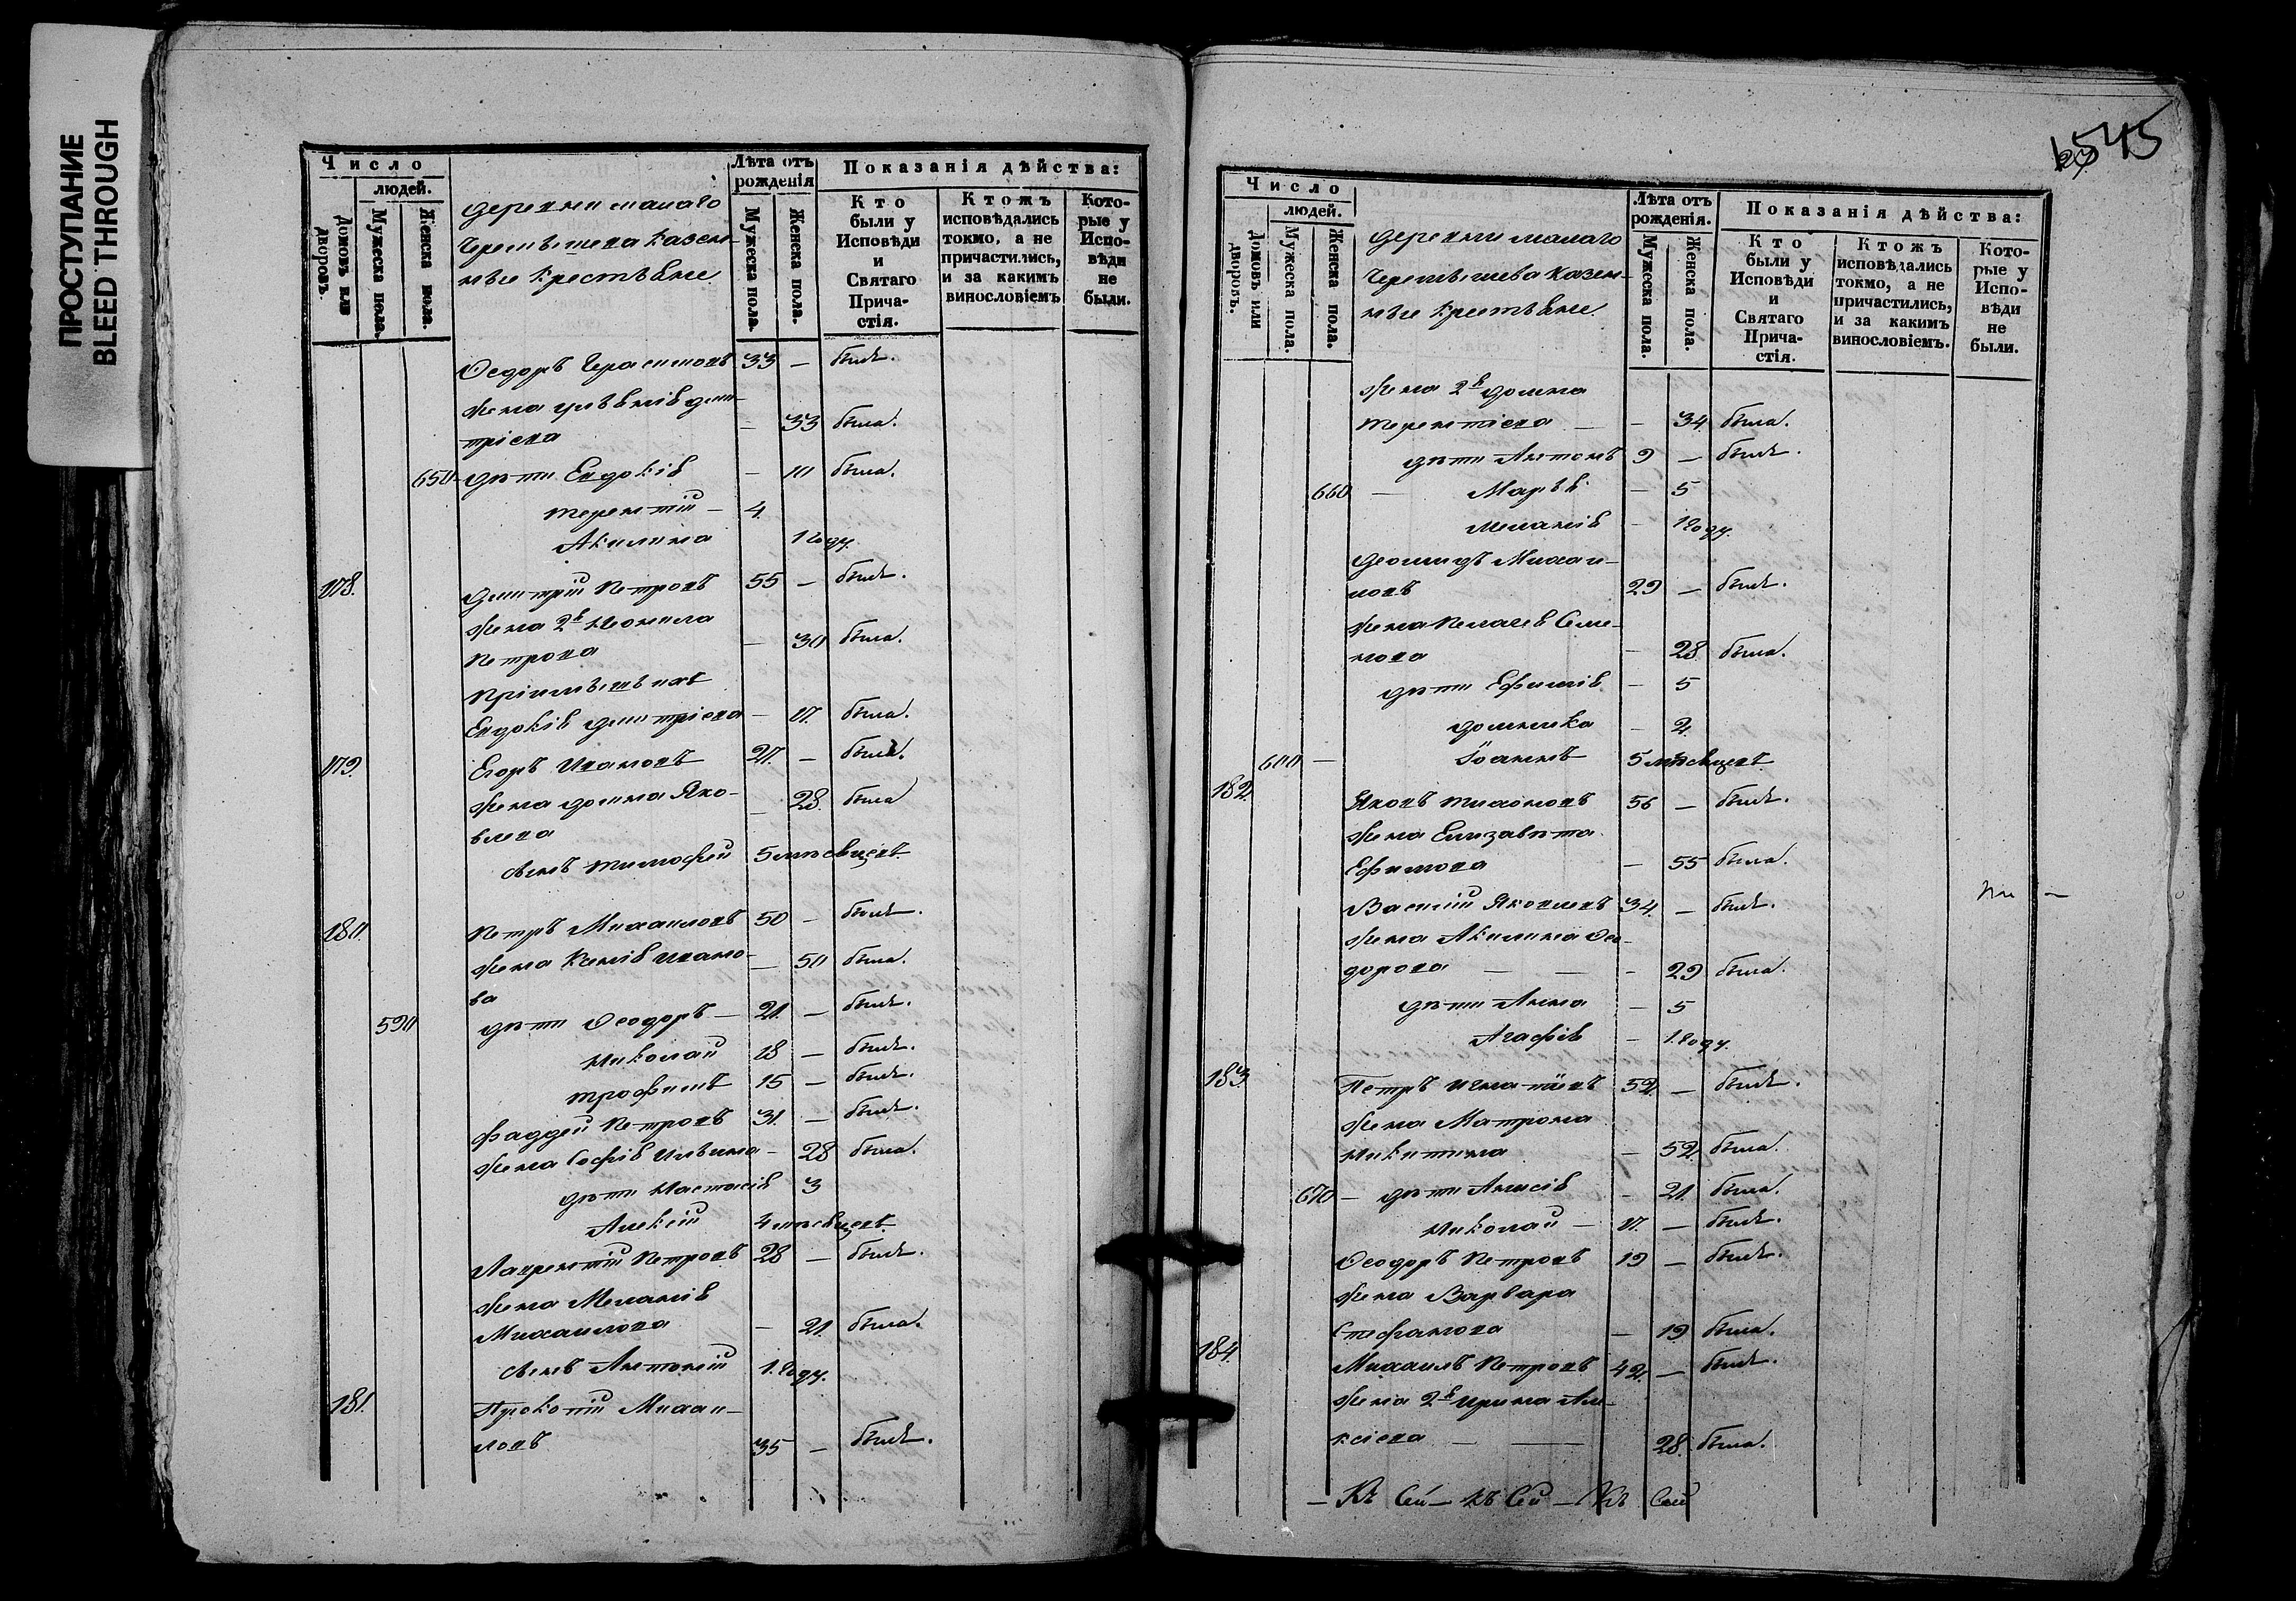 ПРОСТУПАНИЕ
BLEED THROUGH
545
Число
людей.
Домовъ или дворовъ.
Мужеска пола.
Женска пола.
деревни малаго
казен-
ные крестьяне
Лѣта отъ
рожденія
Мужеска пола.
Женска пола.
Показанія дѣйства:
Кто
были у
Исповѣди
и
Святаго
Прича-
стія.
Ктожъ
исповѣдались
токмо, а не
причастились,
и за какимъ
винословіемъ
Кото-
рые у
Испо-
вѣди
не
были.
Ѳедоръ Герасимовъ 33 — былъ.
жена Ульянія Дми-
тріева — 33 была.
650 дѣти Евдокія — 10 была.
Терентій — 4
Акилина 1 году.
178. Дмитрій Петровъ 55 — былъ.
жена 2я Неонила
Петрова — 30 была.
Евдокія Дмитріева — 17. была.
179. Егоръ Ивановъ 27. — былъ.
жена Домна Яко-
влева — 28. была
сынъ Тимофей 5 мѣсяцевъ.
180. Петръ Михаиловъ 50 — былъ.
жена Ксенія Ивано-
ва — 50 была.
590 дѣти Ѳеодоръ — 21. — былъ.
Николай 18 — былъ.
Трофимъ 15 — былъ.
Фаддей Петровъ 31. — былъ.
жена Софія Ильина — 28 была.
дѣти Настасія 3
Алексій 4 мѣсяцевъ.
Лаврентій Петровъ 28 — былъ.
жена Меланія
Михаилова — 21. была.
сынъ Антоній 1. году.
181. Прокопій Михаи-
ловъ 35 — былъ.
Число
людей.
Домовъ или дворовъ.
Мужеска пола.
Женска пола.
деревни малаго
казен-
ные крестьяне
Лѣта отъ
рожденія.
Мужеска пола.
Женска пола.
Показанія дѣйства:
Кто
были у
Исповѣди
и
Святаго
Прича-
стія.
Ктожъ
исповѣдались
токмо, а не
причастились,
и за какимъ
винословіемъ.
Кото-
рые у
Испо-
вѣди
не
были.
жена 2я Домна
Терентіева — — 34. была.
дѣти Антонъ 9 — былъ.
660 — Марья — 5
Меланія — 1 году.
Леонидъ Михаи-
ловъ 29 — былъ.
жена Пелагея Семе-
нова — 28. была.
дѣти Ефимія — 5
Домника — 2.
600 — Іоаннъ 5 мѣсяцевъ.
182. Яковъ Тихоновъ 56 — былъ.
жена Елизавета
Ефимова — 55 была.
Василій Яковлевъ 34. — былъ.
жена Акилина Ѳео-
дорова — — — 29 была.
дѣти Анна — 5
Агафія — 1. году.
183 Петръ Игнатіевъ 52. — былъ.
жена Матрона
Никитина — 52. была.
670 — дѣти Анисія — 21. была.
Николай — 17. — былъ.
Ѳеодоръ Петровъ 19 — былъ.
жена Варвара
Стефанова — 19 была.
184. Михаилъ Петровъ 42. — былъ.
жена 2я Ирина Але-
ксіева — — 28. была.
— Къ Сей — къ Сей — Къ Сей